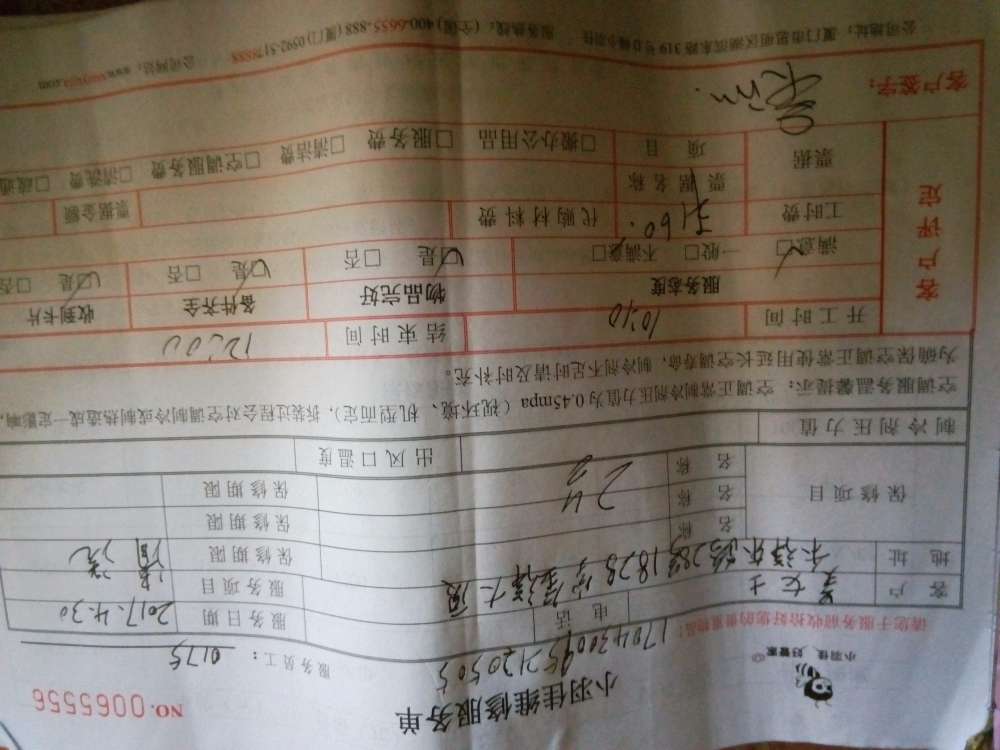 小羽佳维修服务单
NO. 0065556
小羽佳 好管家
服务员工： 0175
请您于服务前收拾好您的贵重物品！
客 户 姜女士 电 话 服务日期 2017.4.30
地 址 服务项目 清洗
保修项目 名 称 保修期限
名 称 保修期限
名 称 保修期限
制冷剂压力值 出风口温度
空调服务温馨提示：空调正常制冷剂压力值为0.45mpa（视环境、机型而定），拆装过程会对空调制冷或制热造成一定影响，
为确保空调正常使用延长空调寿命，制冷剂不足时请及时补充。
开工时间 10:10 结束时间 12:00
客户评定
服务态度 物品完好 备件齐全 收到卡片
满意□ 一般□ 不满意□ □是 □否 □是 □否 □是 □否
工时费 代购材料费 票据金额
票据 票据名称
项 目 □搬办公用品 □服务费 □清洁费 □空调服务费 □清洗费 □疏通
客户签字：
公司地址：厦门市思明区湖滨东路319号 服务热线：(全国)400-6655-888 (厦门)0592-5178888 公司网站：www.